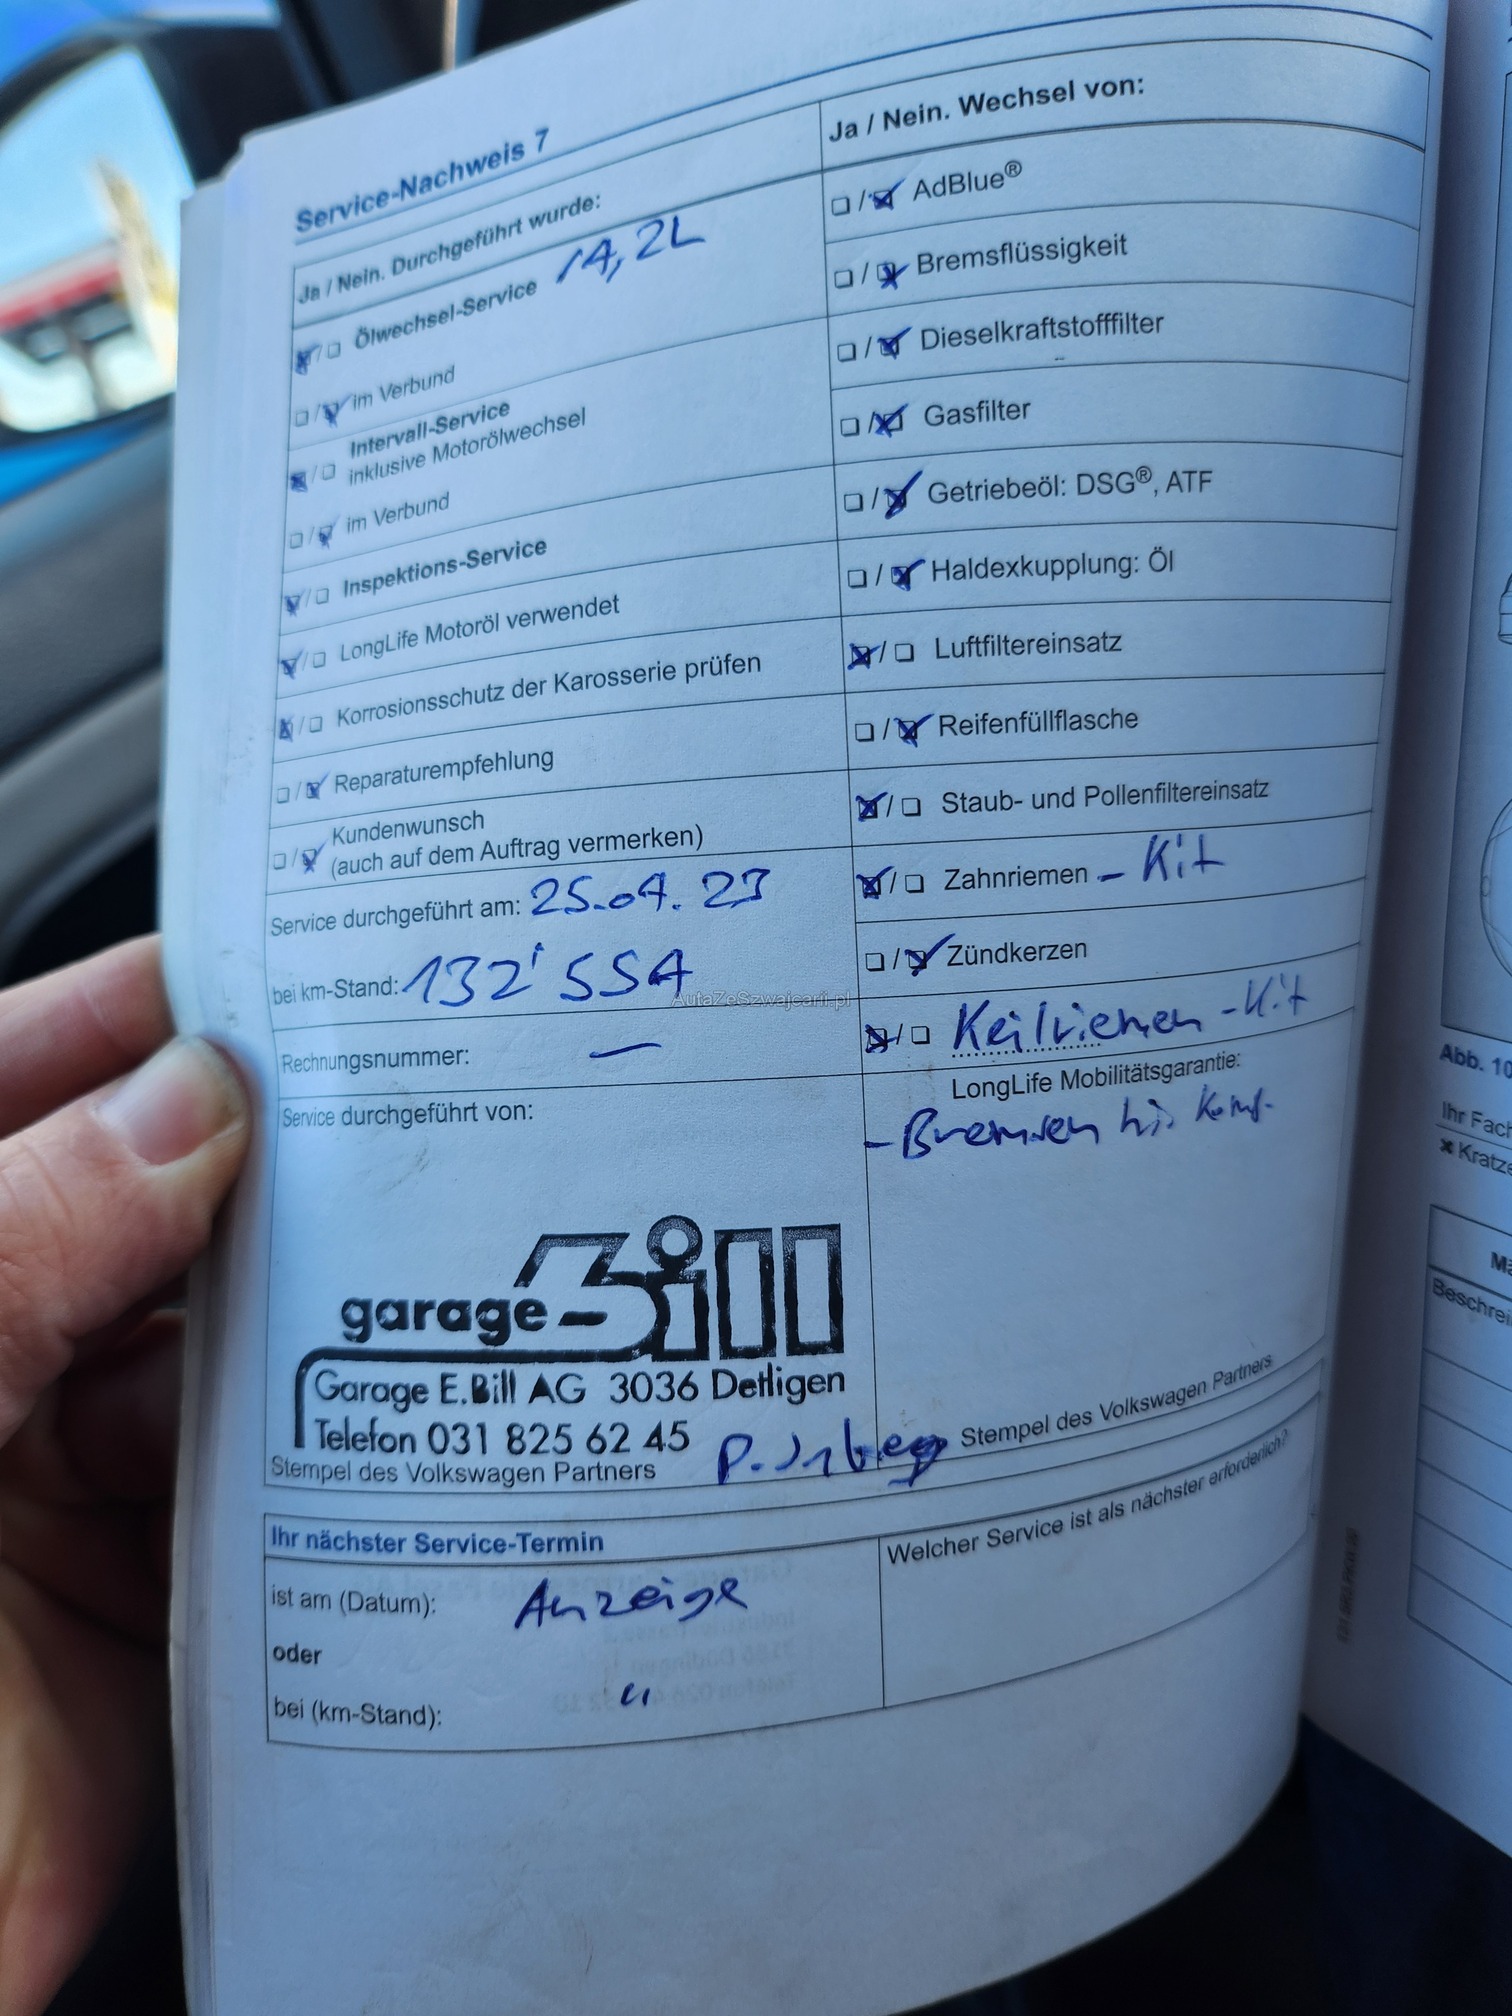 Service-Nachweis 7
Ja / Nein. Durchgeführt wurde:
Ölwechsel-Service 14,2L
im Verbund
Intervall-Service
inklusive Motorölwechsel
im Verbund
Inspektions-Service
LongLife Motoröl verwendet
Korrosionsschutz der Karosserie prüfen
Reparaturempfehlung
Kundenwunsch
(auch auf dem Auftrag vermerken)
Service durchgeführt am: 25.04.23
bei km-Stand: 132'554
Rechnungsnummer: —
Service durchgeführt von:
garage Bill
Garage E.Bill AG 3036 Detligen
Telefon 031 825 62 45
Stempel des Volkswagen Partners
Ja / Nein. Wechsel von:
AdBlue®
Bremsflüssigkeit
Dieselkraftstofffilter
Gasfilter
Getriebeöl: DSG®, ATF
Haldexkupplung: Öl
Luftfiltereinsatz
Reifenfüllflasche
Staub- und Pollenfiltereinsatz
Zahnriemen - Kit
Zündkerzen
Keilriemen - Kit
LongLife Mobilitätsgarantie:
- Bremsen hi. Kompl.
Stempel des Volkswagen Partners
Ihr nächster Service-Termin
ist am (Datum): Anzeige
oder
bei (km-Stand): "
Welcher Service ist als nächster erforderlich?
AutaZeSzwajcarii.pl
Abb. 10
Ihr Fach
Kratze
Beschrei